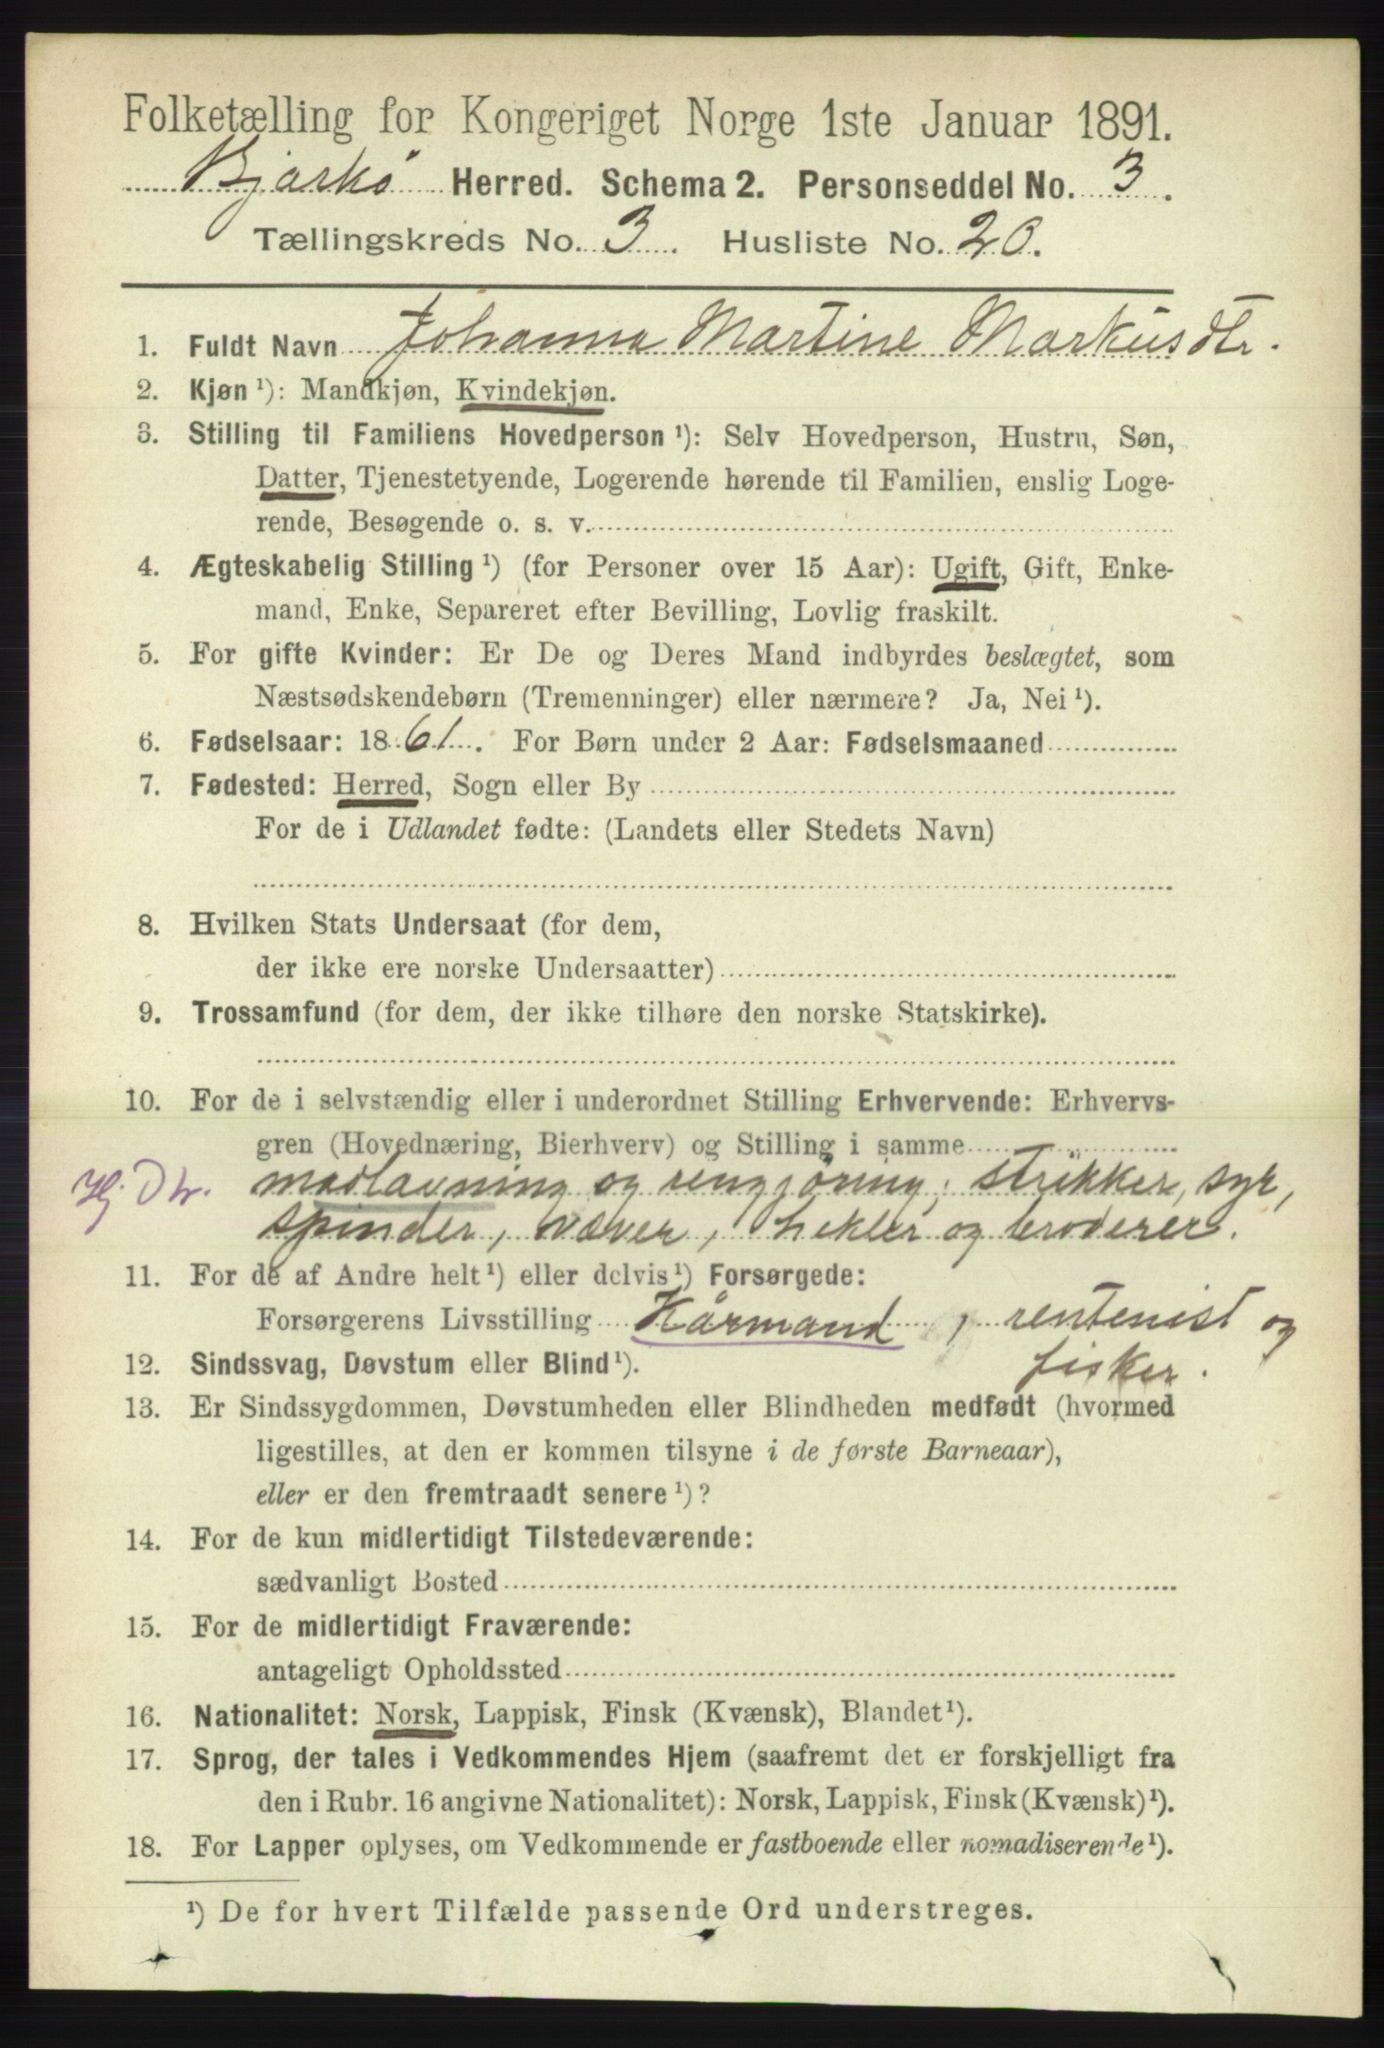 Folketælling for Kongeriget Norge 1ste Januar 1891.
Bjarkø Herred. Schema 2. Personseddel No. 3.
Tællingskreds No. 3. Husliste No. 20.
1. Fuldt Navn Johanna Martine Markusdtr.
2. Kjøn ¹): Mandkjøn, Kvindekjøn.
3. Stilling til Familiens Hovedperson ¹): Selv Hovedperson, Hustru, Søn,
Datter, Tjenestetyende, Logerende hørende til Familien, enslig Loge-
rende, Besøgende o. s. v.
4. Ægteskabelig Stilling ¹) (for Personer over 15 Aar): Ugift, Gift, Enke-
mand, Enke, Separeret efter Bevilling, Lovlig fraskilt.
5. For gifte Kvinder: Er De og Deres Mand indbyrdes beslægtet, som
Næstsødskendebørn (Tremenninger) eller nærmere? Ja, Nei ¹).
6. Fødselsaar: 1861. For Børn under 2 Aar: Fødselsmaaned
7. Fødested: Herred, Sogn eller By
For de i Udlandet fødte: (Landets eller Stedets Navn)
8. Hvilken Stats Undersaat (for dem,
der ikke ere norske Undersaatter)
9. Trossamfund (for dem, der ikke tilhøre den norske Statskirke).
10. For de i selvstændig eller i underordnet Stilling Erhvervende: Erhvervs-
gren (Hovednæring, Bierhverv) og Stilling i samme
Hj. Dtr. madlavning og rengjøring; strikker, syr,
spinder, væver, hekler og broderer.
11. For de af Andre helt ¹) eller delvis ¹) Forsørgede:
Forsørgerens Livsstilling Kårmand, rentenist og
fisker.
12. Sindssvag, Døvstum eller Blind ¹).
13. Er Sindssygdommen, Døvstumheden eller Blindheden medfødt (hvormed
ligestilles, at den er kommen tilsyne i de første Barneaar),
eller er den fremtraadt senere ¹)?
14. For de kun midlertidigt Tilstedeværende:
sædvanligt Bosted
15. For de midlertidigt Fraværende:
antageligt Opholdssted
16. Nationalitet: Norsk, Lappisk, Finsk (Kvænsk), Blandet ¹).
17. Sprog, der tales i Vedkommendes Hjem (saafremt det er forskjelligt fra
den i Rubr. 16 angivne Nationalitet): Norsk, Lappisk, Finsk (Kvænsk) ¹).
18. For Lapper oplyses, om Vedkommende er fastboende eller nomadiserende ¹).
¹) De for hvert Tilfælde passende Ord understreges.